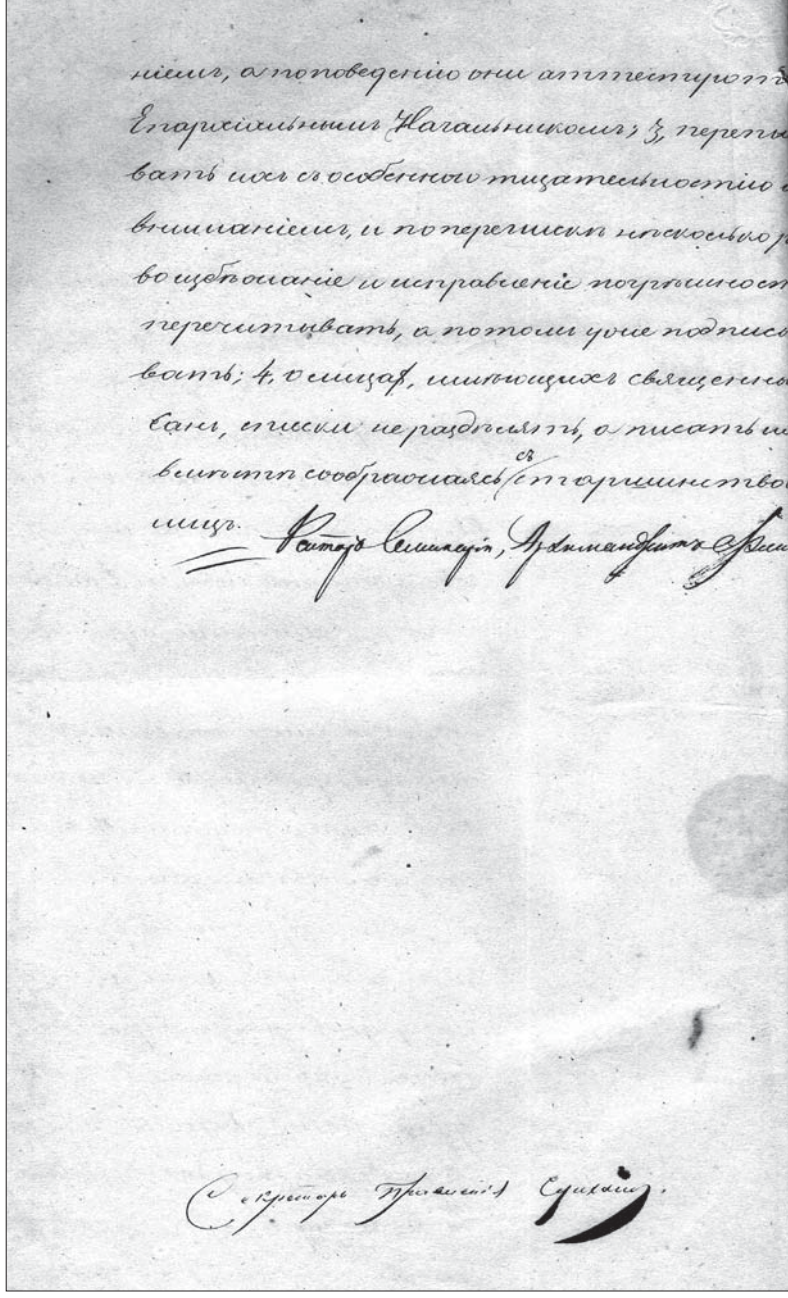 ніемъ, а по поведенію они аттестуютъ
Епархіальнымъ Начальникомъ; 3, перепи
вать ихъ съ особенною тщательностію
вниманіемъ, и по перепискѣ нѣсколько
во избѣжаніе и исправленіе погрѣшност
перечитывать, а потомъ уже подписы
вать; 4, о лицахъ, имѣющихъ священны
санъ, списки не раздѣлять, а писать
вмѣстѣ соображаясь съ старшинство
лицъ.
Ректоръ Семинаріи, Архимандритъ
Секретарь Правленія